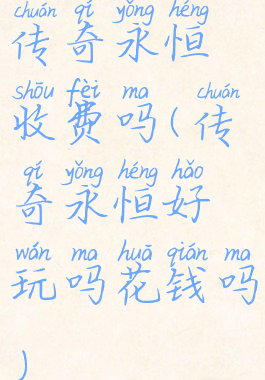 chuán qí yǒng héng
传奇永恒
shōu fèi ma chuán
收费吗(传
qí yǒng héng hǎo
奇永恒好
wán ma huā qián ma
玩吗花钱吗
)